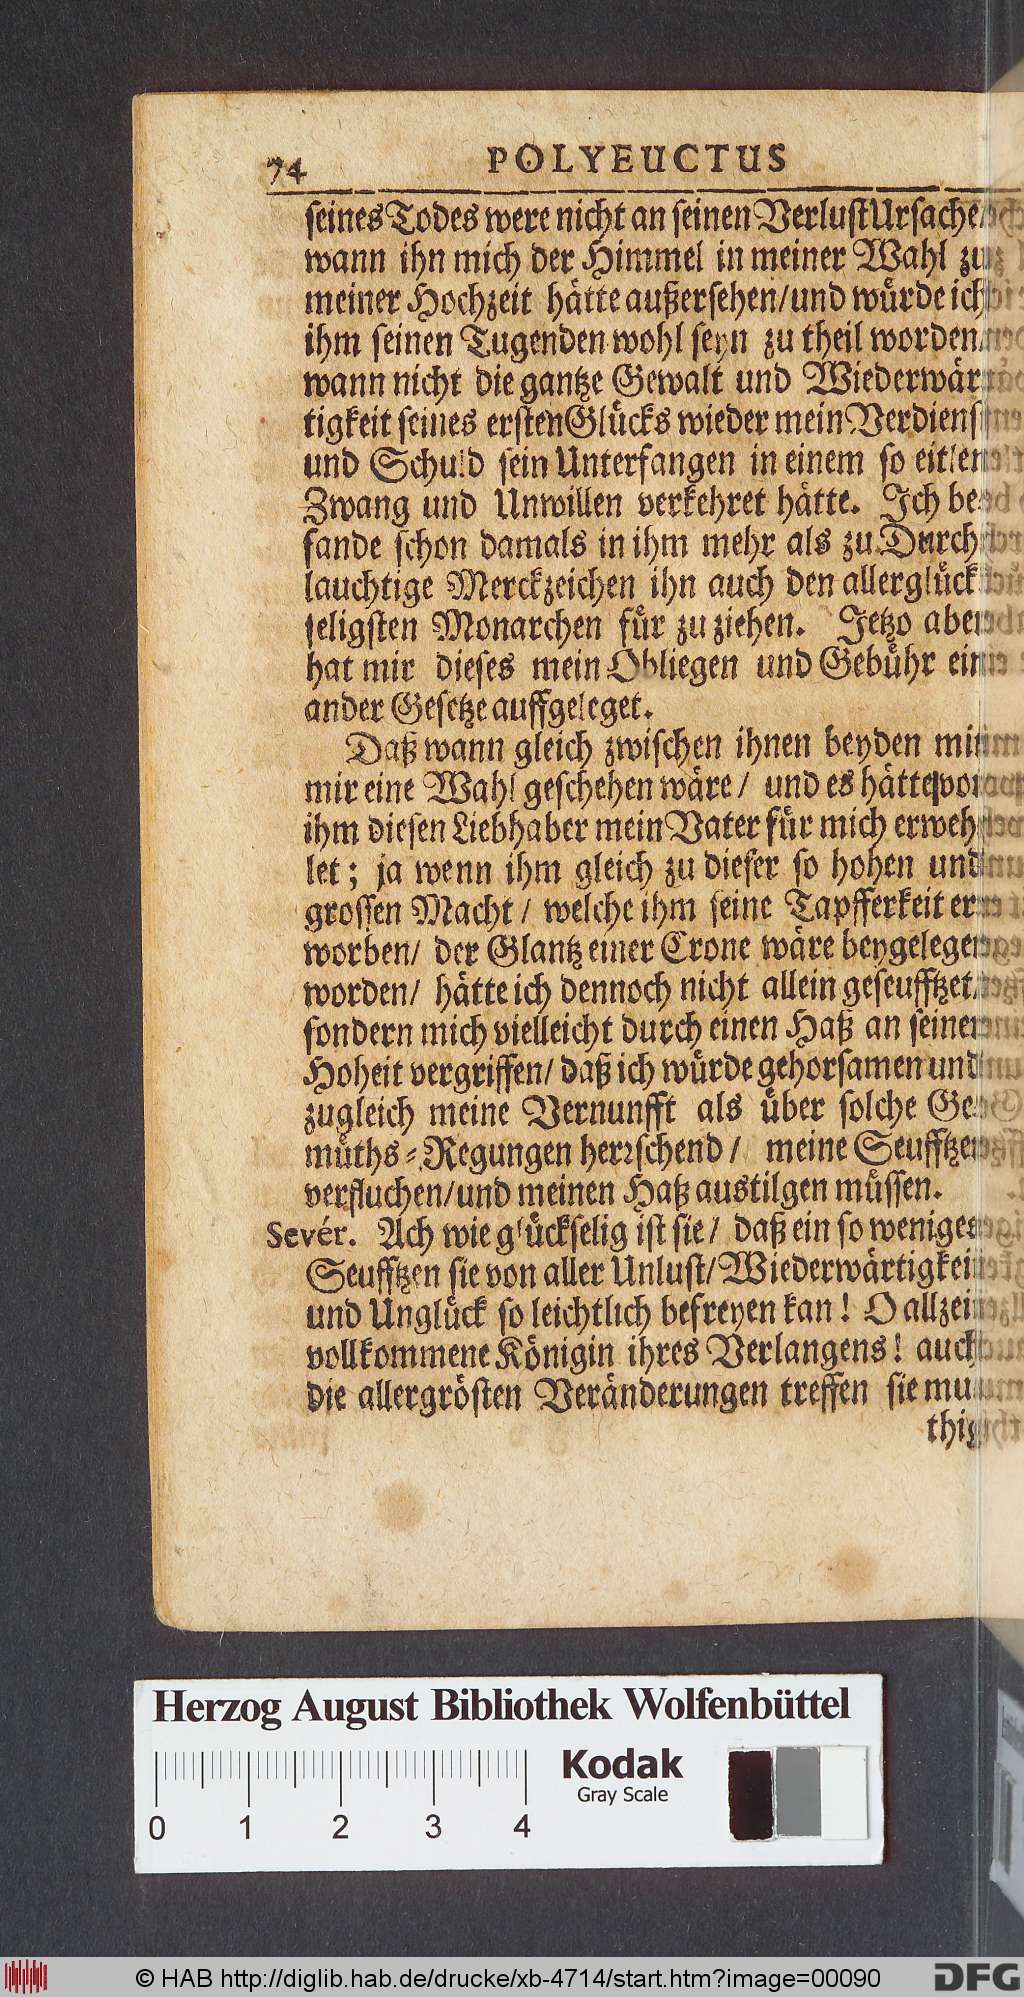 74 POLYEUCTUS
seines Todes were nicht an seinen Verlust Ursache/
wann ihn mich der Himmel in meiner Wahl zu
meiner Hochzeit hätte außersehen/und würde ich
ihm seinen Tugenden wohl seyn zu theil worden/
wann nicht die gantze Gewalt und Wiederwär-
tigkeit seines ersten Glücks wieder mein Verdienst
und Schuld sein Unterfangen in einem so eitlen
Zwang und Unwillen verkehret hätte. Ich be-
fande schon damals in ihm mehr als zu Durch
lauchtige Merckzeichen ihn auch den allerglück
seligsten Monarchen für zu ziehen. Jetzo aber
hat mir dieses mein Obliegen und Gebühr ein
ander Gesetze auffgeleget.
Daß wann gleich zwischen ihnen beyden mit
mir eine Wahl geschehen wäre/ und es hätte vor
ihm diesen Liebhaber mein Vater für mich erweh
let; ja wenn ihm gleich zu dieser so hohen und
grossen Macht/ welche ihm seine Tapfferkeit er
worben/ der Glantz einer Crone wäre beygelegen
worden/ hätte ich dennoch nicht allein geseufftzet/
sondern mich vielleicht durch einen Haß an seiner
Hoheit vergriffen/ daß ich würde gehorsamen und
zugleich meine Vernunfft als über solche Ge-
müths-Regungen herrschend/ meine Seufftzen
verfluchen/und meinen Haß austilgen müssen.
Sevér. Ach wie glückselig ist sie/ daß ein so weniges
Seufftzen sie von aller Unlust/Wiederwärtigkeit
und Unglück so leichtlich befreyen kan! O allzeit
vollkommene Königin ihres Verlangens! auch
die allergrösten Veränderungen treffen sie mu
thig
Herzog August Bibliothek Wolfenbüttel
Kodak
Gray Scale
0 1 2 3 4
© HAB http://diglib.hab.de/drucke/xb-4714/start.htm?image=00090
DFG